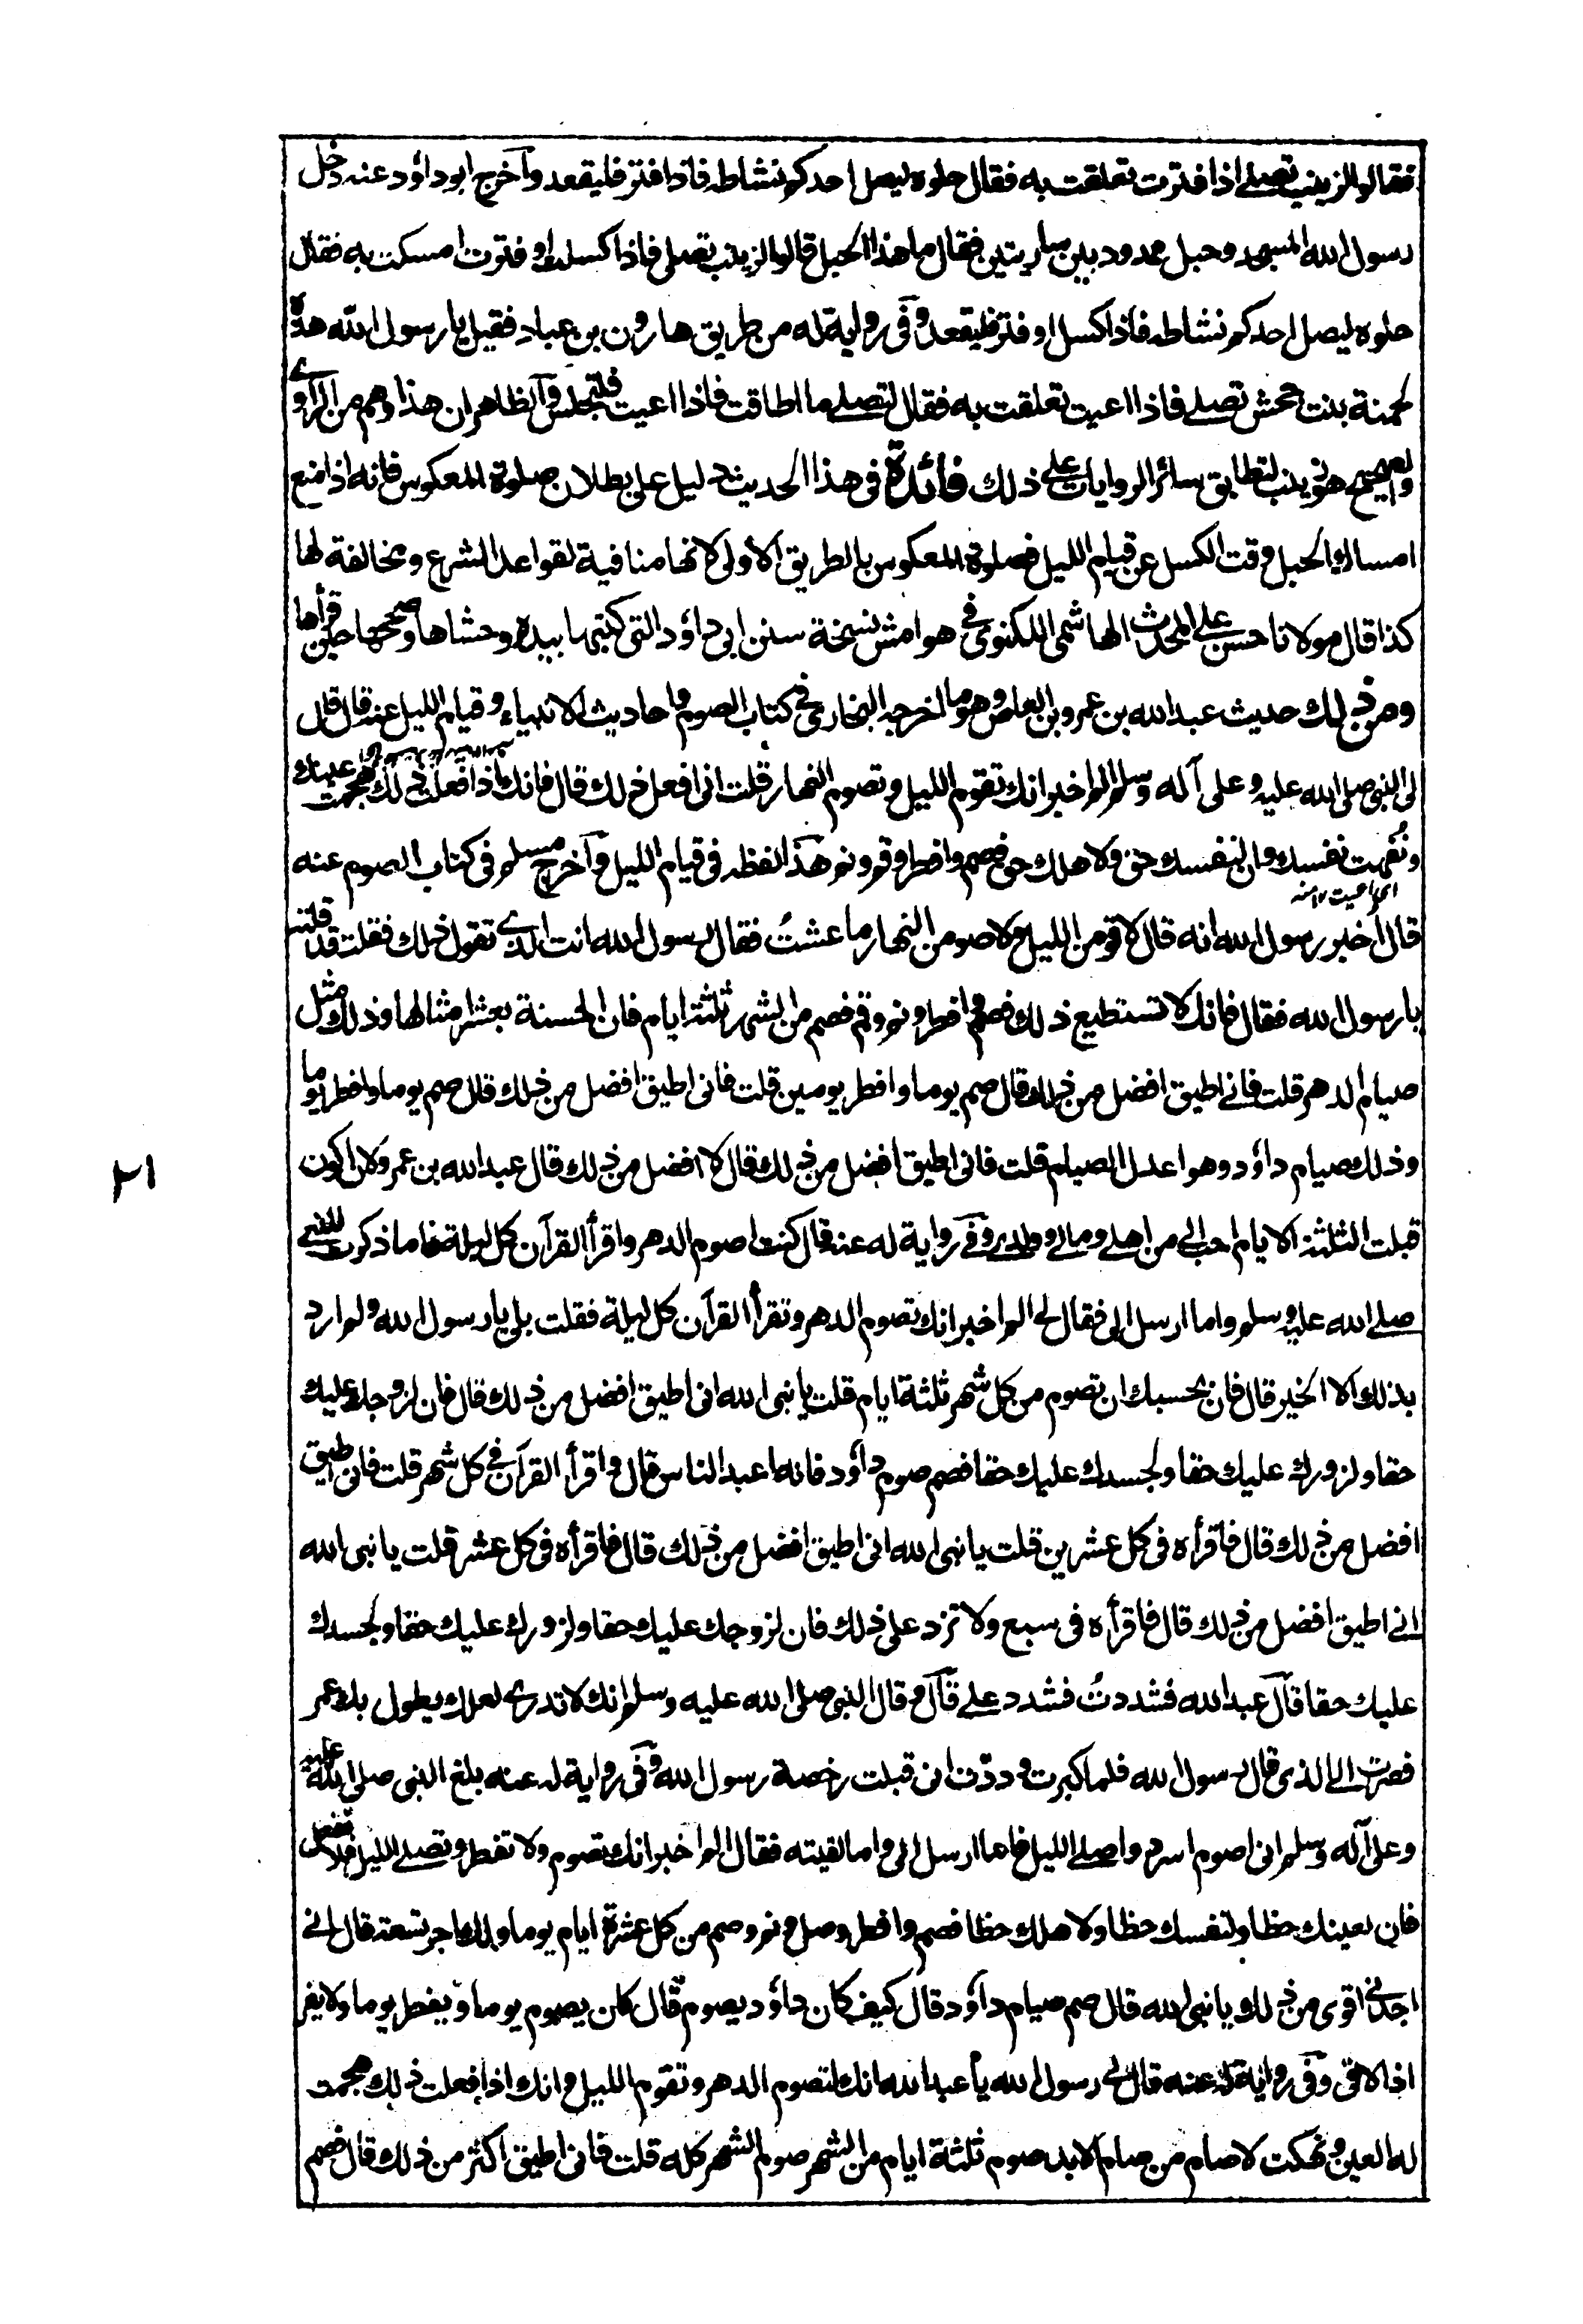 فقالوا لزينب تصلے اذا فترت تعلقت به فقال حلوه ليصل احدكم نشاطه فاذا فتر فليقعد وآخرج ابو داؤد عنه دخل
رسول الله المسجد وحبل ممدود بين ساريتين فقال ما هذا الحبل قالوا لزينب تصلى فاذا كسلت او فترت امسكت به فقال
حلوه ليصل احدكم نشاطه فاذا كسل او فتر فليقعد وفى رواية له من طريق هارون بن عباد فقيل يا رسول الله هذه
لحمنة بنت جحش تصلے فاذا اعيت تعلقت به فقال لتصلے ما اطاقت فاذا اعيت فلتجلس وآلظاهر ان هذا وهم من الراوے
والصحيح هو زينب لتطابق سائر الروايات على ذلك فائدة فى هذا الحديث دليل على بطلان صلوة المعكوس فانه اذا منع
امساك الحبل وقت الكسل عن قيام الليل فصلوة المعكوس بالطريق الاولى لانها منافية لقواعد الشرع ومخالفة لها
كذا قال مولانا حسن على المحدث الهاشمى اللكنوى فى هوامش نسخة سنن ابى داؤد التى كتبها بيده وحشاها وصححها حين قرأها
ومن ذلك حديث عبد الله بن عمرو بن العاص وهو ما اخرجه البخارى فى كتاب الصوم واحاديث الانبياء وقيام الليل عنه قال قال
لى النبى صلى الله عليه وعلى آله وسلم الم اخبر انك تقوم الليل وتصوم النهار قلت انى افعل ذلك قال فانك اذا فعلت ذلك هجمت عينك
ونفهت نفسك وان لنفسك حق ولاهلك حق فصم وافطر وقم ونم هذا لفظه فى قيام الليل وآخرج مسلم فى كتاب الصوم عنه
اى اعيت ١٢ منه
قال اخبر رسول الله انه قال لاقومن الليل ولاصومن النهار ما عشتُ فقال رسول الله انت الذے تقول ذلك فقلت قد قلته
يا رسول الله فقال فانك لا تستطيع ذلك فصم وافطر ونم وقم فصم من الشهر ثلثة ايام فان الحسنة بعشر امثالها وذلك مثل
صيام الدهر قلت فانے اطيق افضل من ذلك قال صم يوما وافطر يومين قلت فانى اطيق افضل من ذلك قال صم يوما وافطر يوما
وذلك صيام داؤد وهو اعدل الصيام قلت فانى اطيق افضل من ذلك قال لا افضل من ذلك قال عبد الله بن عمرو لان اكون
قبلت الثلثة الايام احب الى من اهلے ومالے وولدے وفے رواية له عنه قال كنت اصوم الدهر واقرأ القرآن كل ليلة فاما ذكرت للنبے
صلے الله عليه وسلم واما ارسل الى فقال لى الم اخبر انك تصوم الدهر وتقرأ القرآن كل ليلة فقلت بلى يا رسول الله ولم ارد
بذلك الا الخير قال فان بحسبك ان تصوم من كل شهر ثلثة ايام قلت يا نبى الله انى اطيق افضل من ذلك قال فان لزوجك عليك
حقا ولزورك عليك حقا ولجسدك عليك حقا فصم صوم داؤد فانه اعبد الناس قال واقرأ القرآن فى كل شهر قلت فانى اطيق
افضل من ذلك قال فاقرأه فى كل عشرين قلت يا نبى الله انى اطيق افضل من ذلك قال فاقرأه فى كل عشر قلت يا نبى الله
انے اطيق افضل من ذلك قال فاقرأه فى سبع ولا تزد على ذلك فان لزوجك عليك حقا ولزورك عليك حقا ولجسدك
عليك حقا قال عبد الله فشددتُ فشدد علے قال وقال النبى صلى الله عليه وسلم انك لا تدرے لعلك يطول بك عمر
فصرت الى الذى قال رسول الله فلما كبرت وددت ان قبلت رخصة رسول الله وفى رواية له عنه بلغ النبى صلى الله عليه
وعلى آله وسلم انى اصوم اسرد واصلے الليل فاما ارسل الى واما لقيته فقال الم اخبر انك تصوم ولا تفطر وتصلے الليل فلا تفعل
فان لعينك حظا ولنفسك حظا ولاهلك حظا فصم وافطر وصل ونم وصم من كل عشرة ايام يوما ولك اجر تسعة قال انے
اجدنے اقوى من ذلك يا نبى الله قال صم صيام داؤد قال كيف كان داؤد يصوم قال كان يصوم يوما ويفطر يوما ولا يفر
اذا لاقى وفى رواية له عنه قال لى رسول الله يا عبد الله انك لتصوم الدهر وتقوم الليل وانك اذا فعلت ذلك هجمت
له العين ونهكت لا صام من صام الابد صوم ثلثة ايام من الشهر صوم الشهر كله قلت فانى اطيق اكثر من ذلك قال فصم
٢١